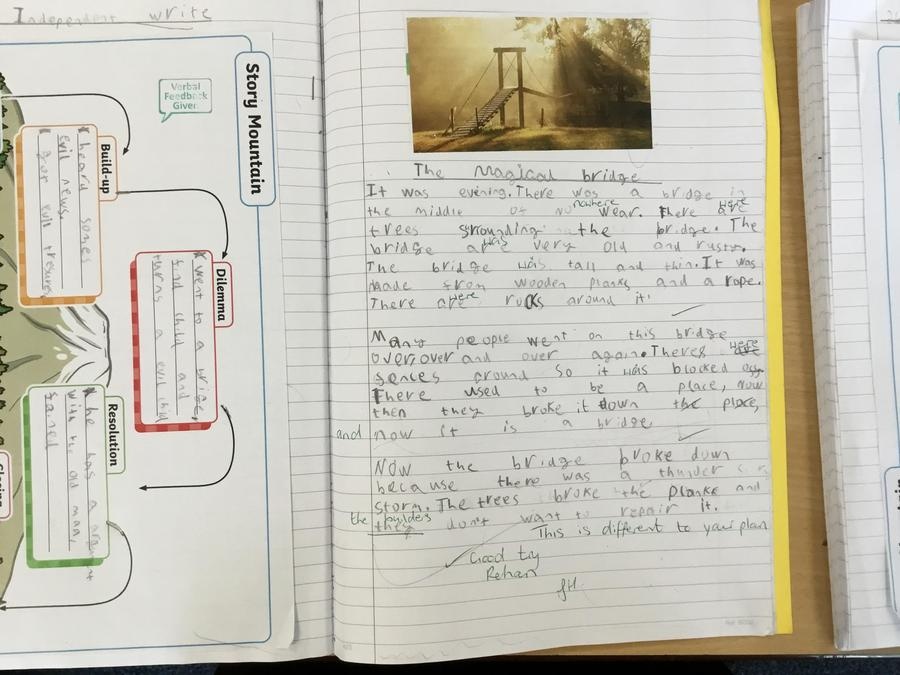 Independent write
Story Mountain
Verbal
Feedback
Given
Build-up
heard
evil news
for evil
Dilemma
went to a bridge,
find child and
turns a evil child
Resolution
he has a argument
with the old man,
The magical bridge
It was evening. There was a bridge in
the middle of no nowhere wear. There are were
trees srrounding the bridge. The
bridge are was very old and rusty.
The bridge was tall and thin. It was
made from wooden planks and a rope.
There are were rocks around it.
Many people went on this bridge
over, over and over again. Theres are were
fences around so it was blocked off.
There used to be a place, now
then they broke it down the place,
and now it is a bridge
Now the bridge broke down
because there was a thunder
storm. The trees broke the planks and
the builders they don't want to repair it.
This is different to your plan
Good try
Rehan